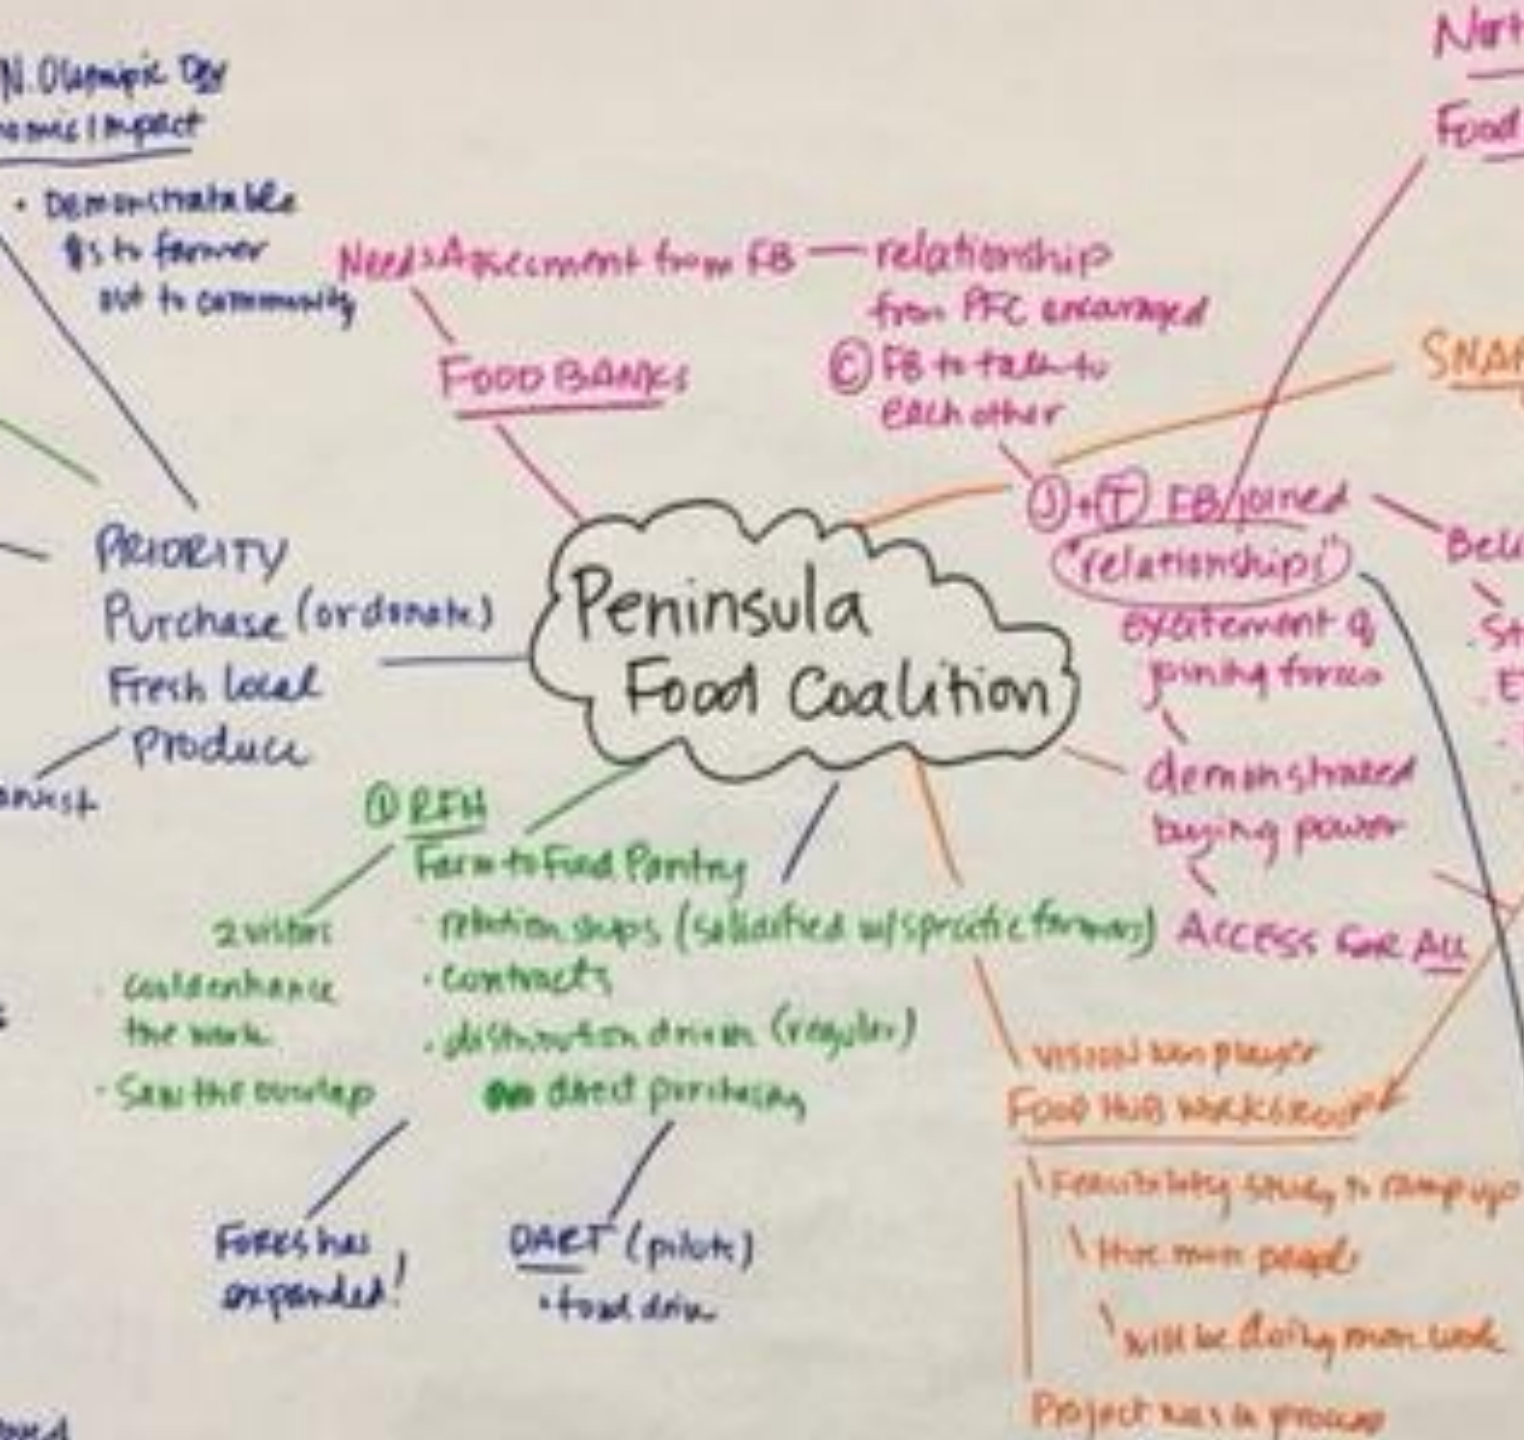 N. Olympic Dev
nomic Impact
• Demonstratable
$s to farmer
out to community
Needs Assesment from FB — relationship
from PFC encouraged
Ⓒ FB to talk to
each other
FOOD BANKS
Food
SNAP
Ⓙ+Ⓣ FB joined
"relationships"
excitement of
joining forces
demonstrated
buying power
ACCESS FOR ALL
PRIORITY
Purchase (or donate)
Fresh local
produce
Peninsula
Food Coalition
① RFH
Farm to Food Pantry
• relationships (solidified w/ specific farmers)
• contracts
• distribution driven (regular)
direct purchasing
2 visions
• could enhance
the work
• Saw the overlap
Forks has
expanded!
DART (pilots)
• food drive
vision
FOOD HUB WORKGROUP
Feasibility study to ramp up
Hire more people
will be doing more work
Project was in process